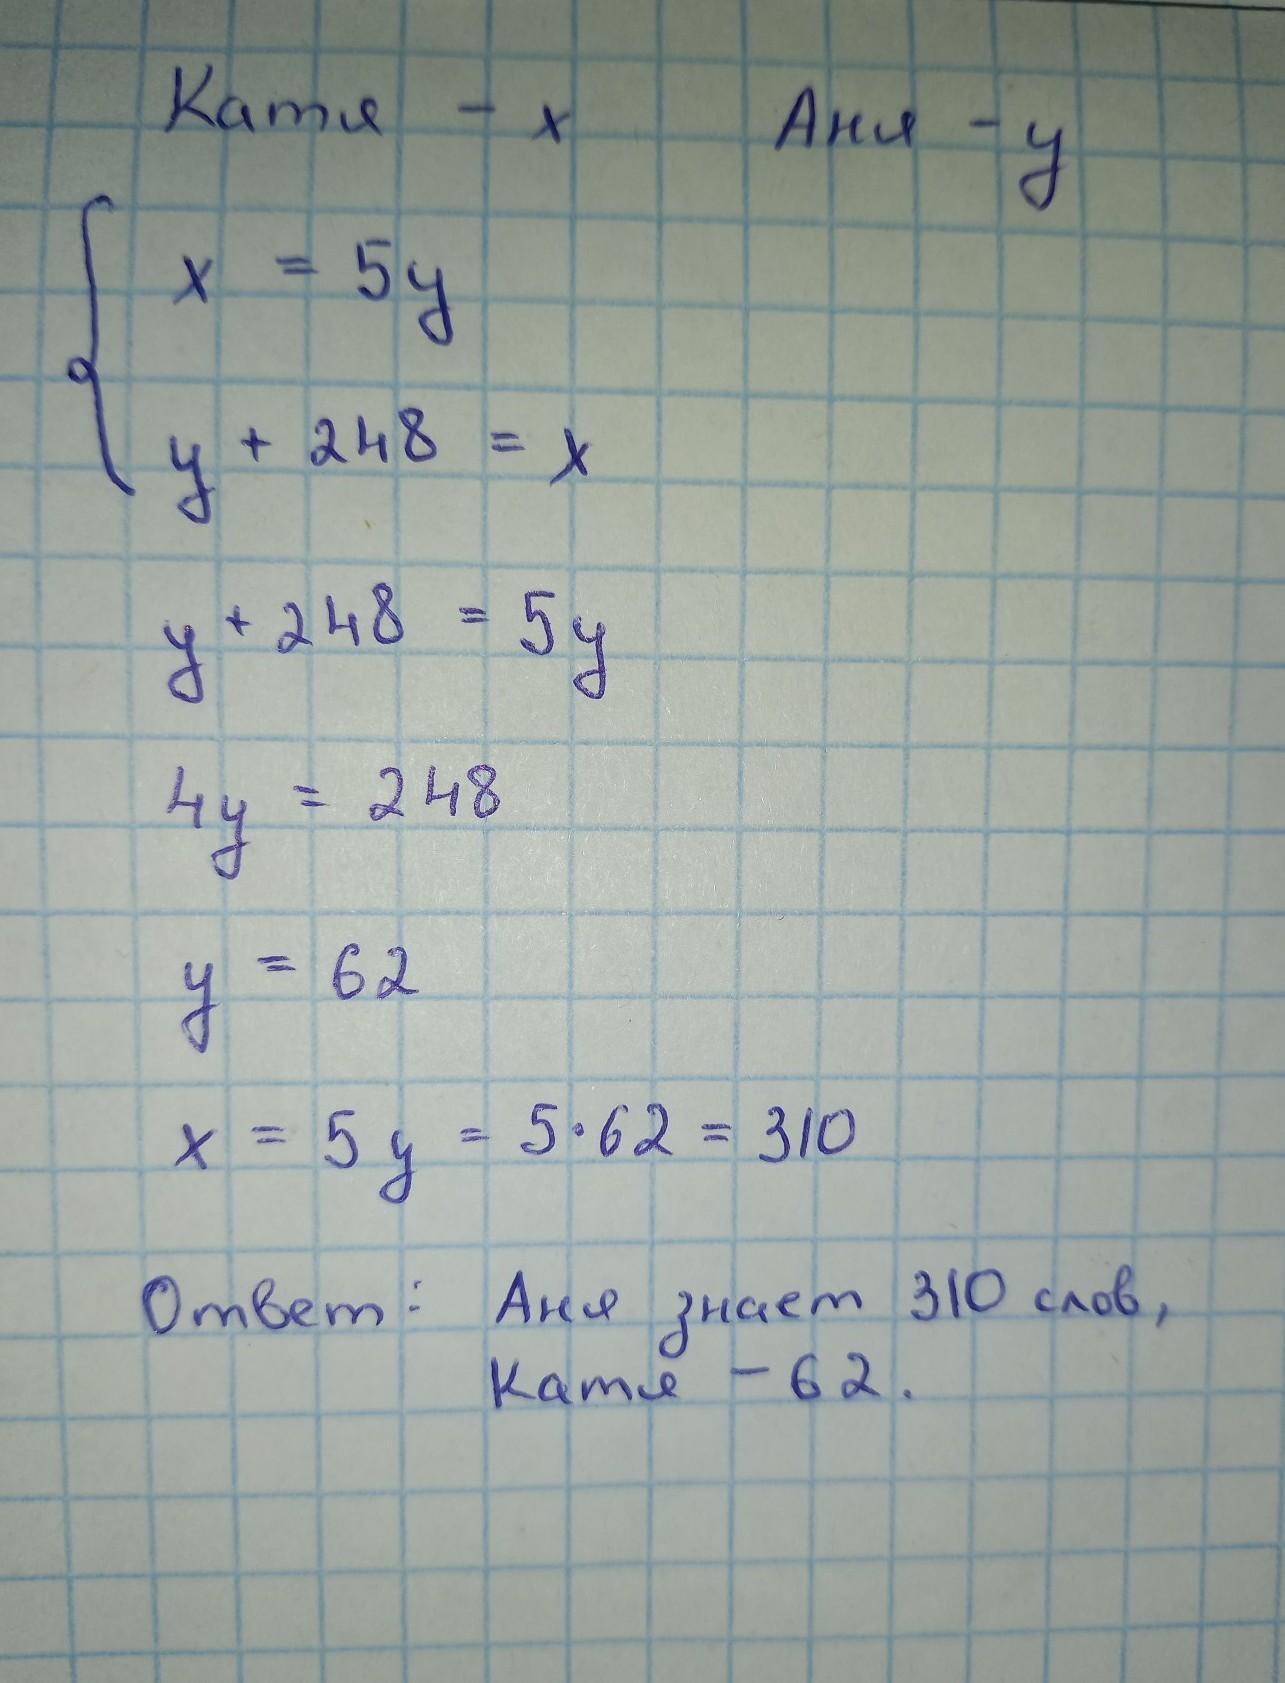 Катя - x Аня - y
x = 5y
y + 248 = x
y + 248 = 5y
4y = 248
y = 62
x = 5y = 5·62 = 310
Ответ: Аня знает 310 слов,
Катя - 62.